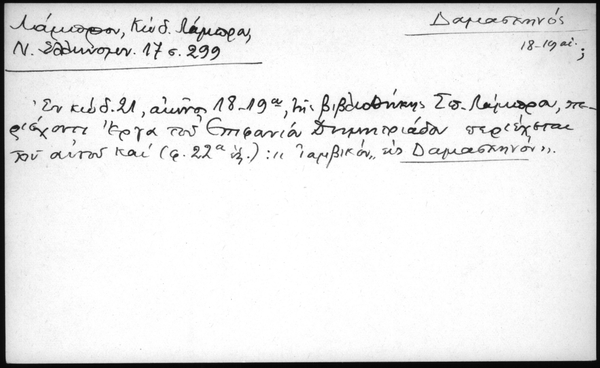 Λάμπρου, Κώδ. Λάμπρου,
Ν. Ἑλληνομν. 17 σ. 299
Δαμασκηνός
18-19 αἰ. ;
Ἐν κώδ. 21, αἰῶνος 18-19ου, τῆς βιβλιοθήκης Σπ. Λάμπρου, πε-
ριέχοντι ἔργα τοῦ Ἐπιφανίου Δημητριάδου περιέχεται
τοῦ αὐτοῦ καί (φ. 22α ἑξ.) : „ Ἰαμβικόν „ εἰς Δαμασκηνόν".